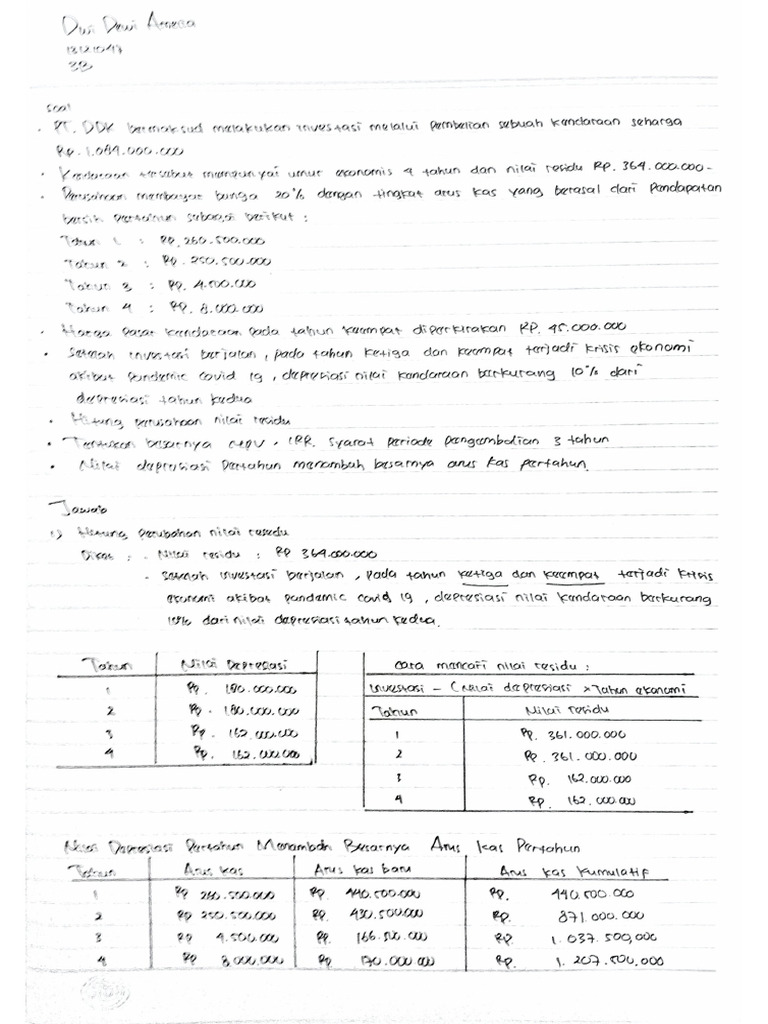 Dwi Dewi
3B
soal
• PT. DDK bermaksud melakukan investasi melalui pembelian sebuah kendaraan seharga
Rp. 1.084.000.000
• Kendaraan tersebut mempunyai umur ekonomis 4 tahun dan nilai residu Rp. 364.000.000-
• Perusahaan membayar bunga 20% dengan tingkat arus kas yang berasal dari pendapatan
bersih pertahun sebagai berikut :
Tahun 1 : Rp. 260.500.000
Tahun 2 : Rp. 250.500.000
Tahun 3 : Rp. 4.500.000
Tahun 4 : Rp. 8.000.000
• Harga pasar kendaraan pada tahun keempat diperkirakan Rp. 45.000.000
• Setelah investasi berjalan, pada tahun ketiga dan keempat terjadi krisis ekonomi
akibat pandemic covid 19, depresiasi nilai kendaraan berkurang 10% dari
depresiasi tahun kedua
• Hitung perusahaan nilai residu
• Tentukan besarnya NPV, IRR. Syarat periode pengembalian 3 tahun
• Nilai depresiasi pertahun menambah besarnya arus kas pertahun.
Jawab
1) Hitung perubahan nilai residu
Diket : - Nilai residu : Rp 364.000.000
- Setelah investasi berjalan, pada tahun ketiga dan keempat terjadi krisis
ekonomi akibat pandemic covid 19, depresiasi nilai kendaraan berkurang
10% dari nilai depresiasi tahun kedua.
Tahun Nilai Depresiasi
1 Rp. 180.000.000
2 Rp. 180.000.000
3 Rp. 162.000.000
4 Rp. 162.000.000
cara mencari nilai residu :
Investasi - (Nilai depresiasi x Tahun ekonomi
Tahun Nilai residu
1 Rp. 361.000.000
2 Rp. 361.000.000
3 Rp. 162.000.000
4 Rp. 162.000.000
Nilai Depresiasi Pertahun Menambah Besarnya Arus Kas Pertahun
Tahun Arus kas Arus kas baru Arus kas kumulatif
1 Rp 260.500.000 Rp. 440.500.000 Rp. 440.500.000
2 Rp 250.500.000 Rp. 430.500.000 Rp. 871.000.000
3 Rp 4.500.000 Rp. 166.500.000 Rp. 1.037.500.000
4 Rp 8.000.000 Rp. 170.000.000 Rp. 1.207.500.000